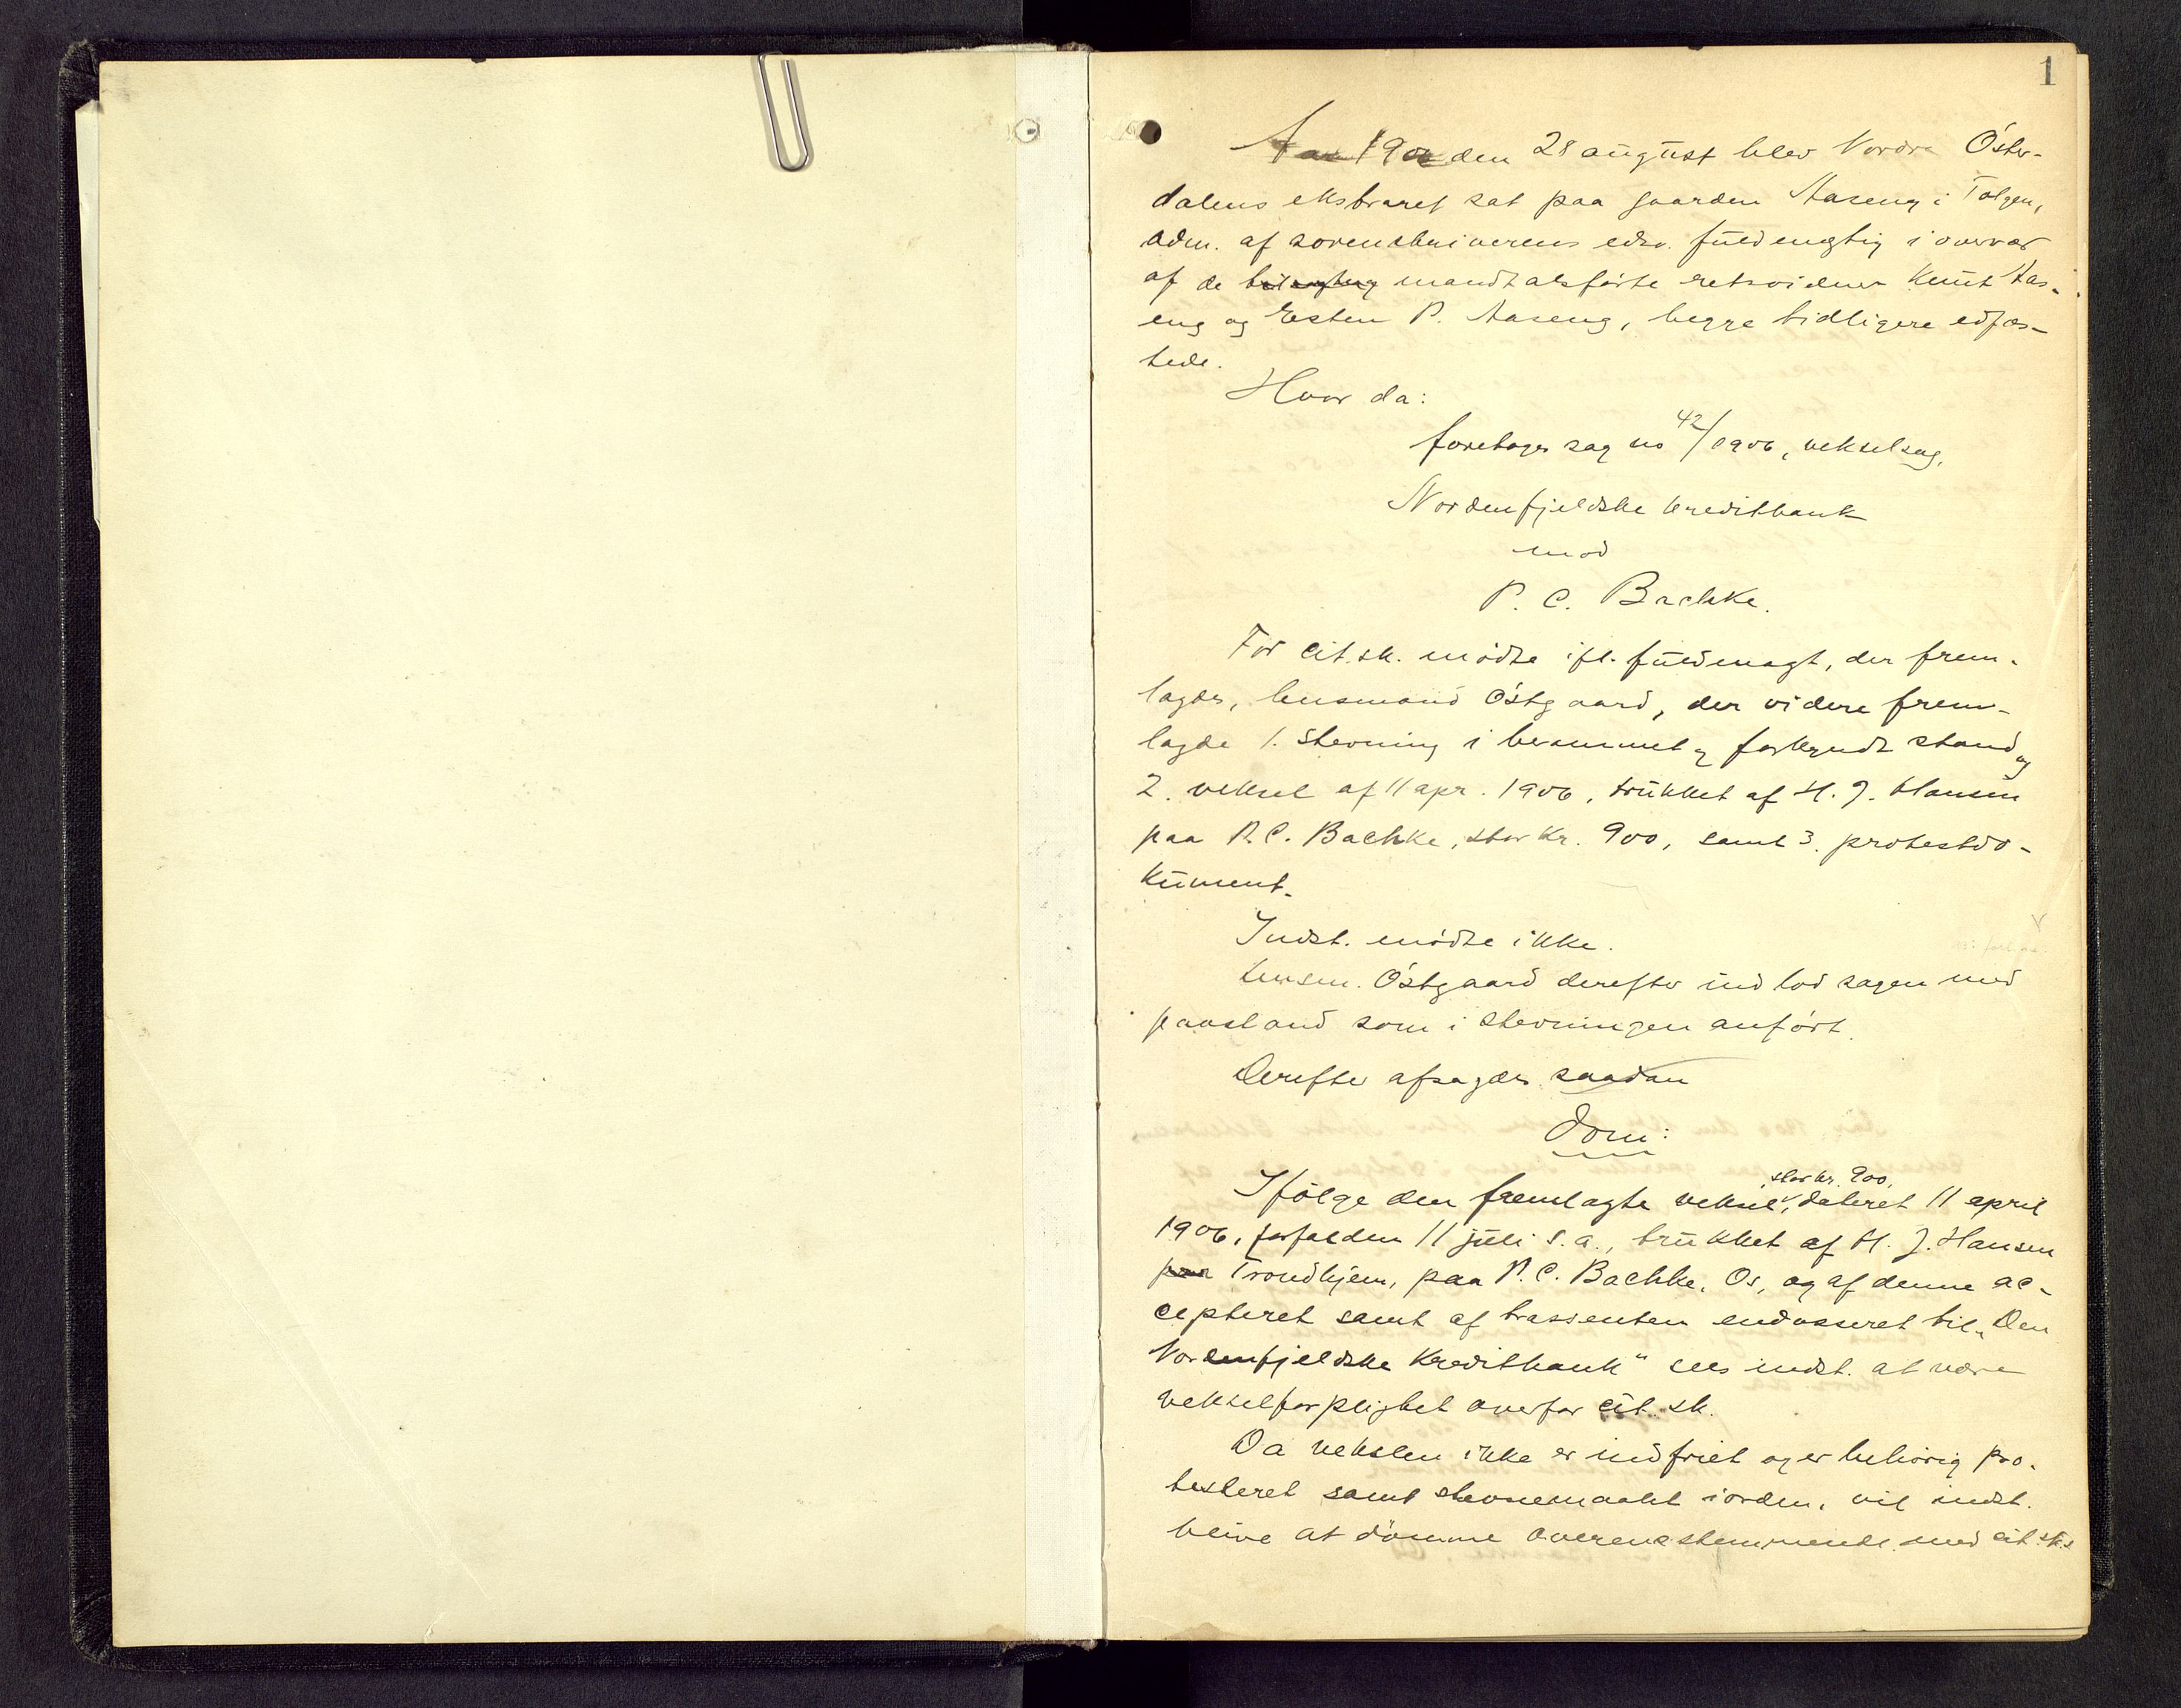 1
Aar 1906 den 28 august blev Nordre Öster-
dalens ekstraret sat paa gaarden Aaseng i Tolgen,
adm. af sorenskriverens edsv. fuldmegtig i overvær
af de mandtalsförte retsvidner Knut Aas-
eng og Esten P. Aaseng, begge tidligere edfæs-
tede.
Hvor da:
foretoges sag no 42/1906, vekselsag,
Nordenfjeldske Kreditbank
mod
P. C. Bachke.
For cit.sk. mödte ifl. fuldmagt, der frem-
lagdes, lensmand Östgaard, der videre frem-
lagde 1. stevning i berammet og forkyndt stand og
2. veksel af 11 apr. 1906, trukket af H. J. Hansen
paa P.C. Bachke, stor kr. 900, samt 3. protestdo-
kument.
Indst. mödte ikke.
Lensm. Östgaard derefter indlod sagen med
paastand som i stevningen anfört.
Derefter afsagdes saadan
Dom:
Ifölge den fremlagte veksel, stor kr. 900, dateret 11 april
1906, forfalden 11 juli s.a., trukket af H. J. Hansen
paa Trondhjem, paa P.C. Bachke, Os, og af denne ac-
cepteret samt af trassenten endosseret til „Den
Nordenfjeldske Kreditbank" sees indst. at være
vekselforpligtet overfor cit.sk.
Da vekslen ikke er indfriet og er behörig pro-
testeret samt stevnemaalet iorden, vil indst.
blive at dömme overensstemmende med cit.sk.s